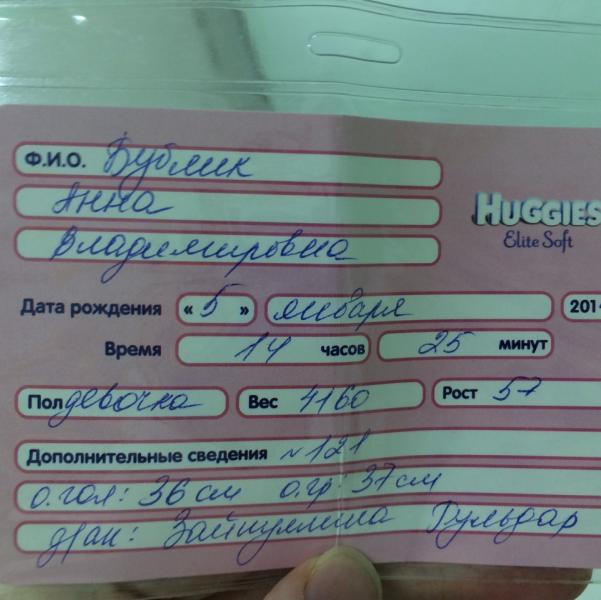 Ф.И.О. Бублик
Анна
Владимировна
HUGGIES
Elite Soft
Дата рождения « 5 » января 201
Время 14 часов 25 минут
Пол девочка Вес 4160 Рост 57
Дополнительные сведения №121
о.гол: 36 см о.гр: 37 см
д/ак: Зайнуллина Гульдар